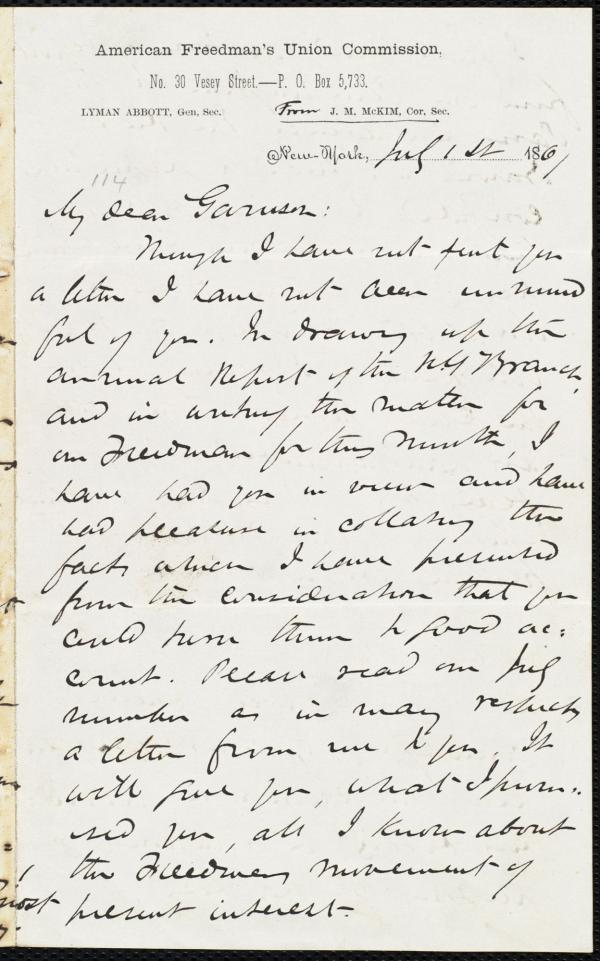 American Freedman's Union Commission,
No. 30 Vesey Street.—P. O. Box 5,733.
LYMAN ABBOTT, Gen, Sec. From J. M. McKIM, Cor, Sec.
New-York, July 1st 1867
114
My dear Garrison:
Though I have not sent you
a letter I have not been unmind
ful of you. In drawing up the
annual Report of the N.Y Branch,
and in writing the matter for
our Freedman for this Month, I
have had you in view and have
had pleasure in collating the
facts which I have presented
from the consideration that you
could turn them to good ac:
count. Please read our July
number as in many respects
a letter from me to you. It
will give you, what I prom:
ised you, all I know about
the Freedmens movement of
present interest.
most